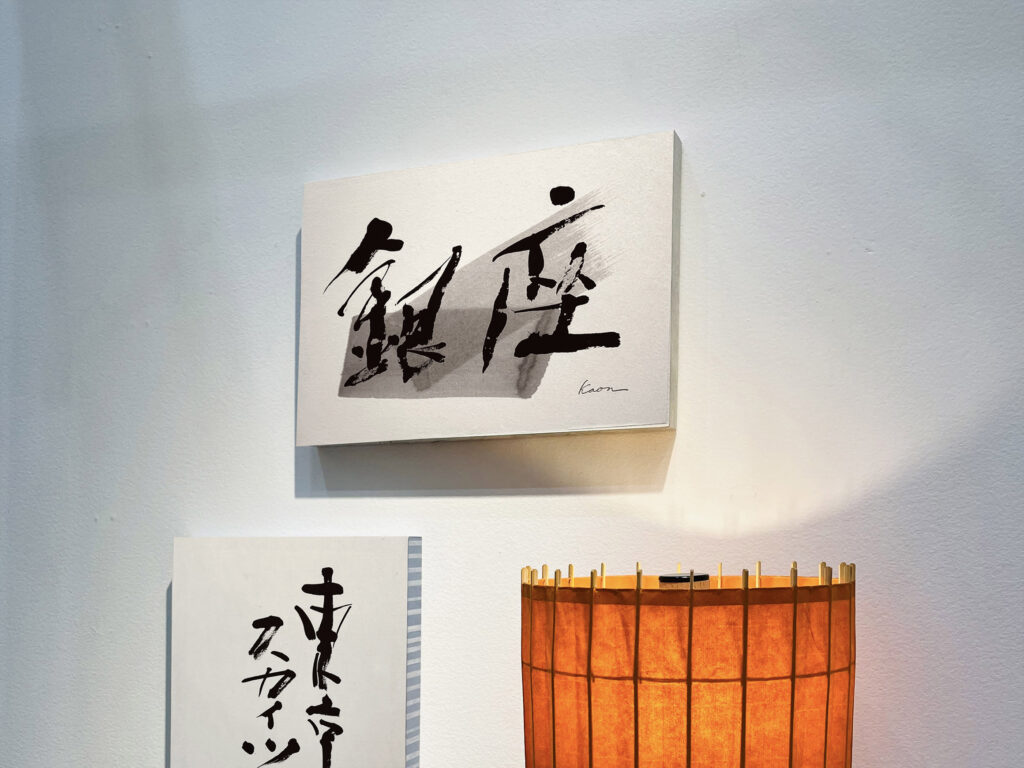 銀座
Kaon
東京
スカイツ